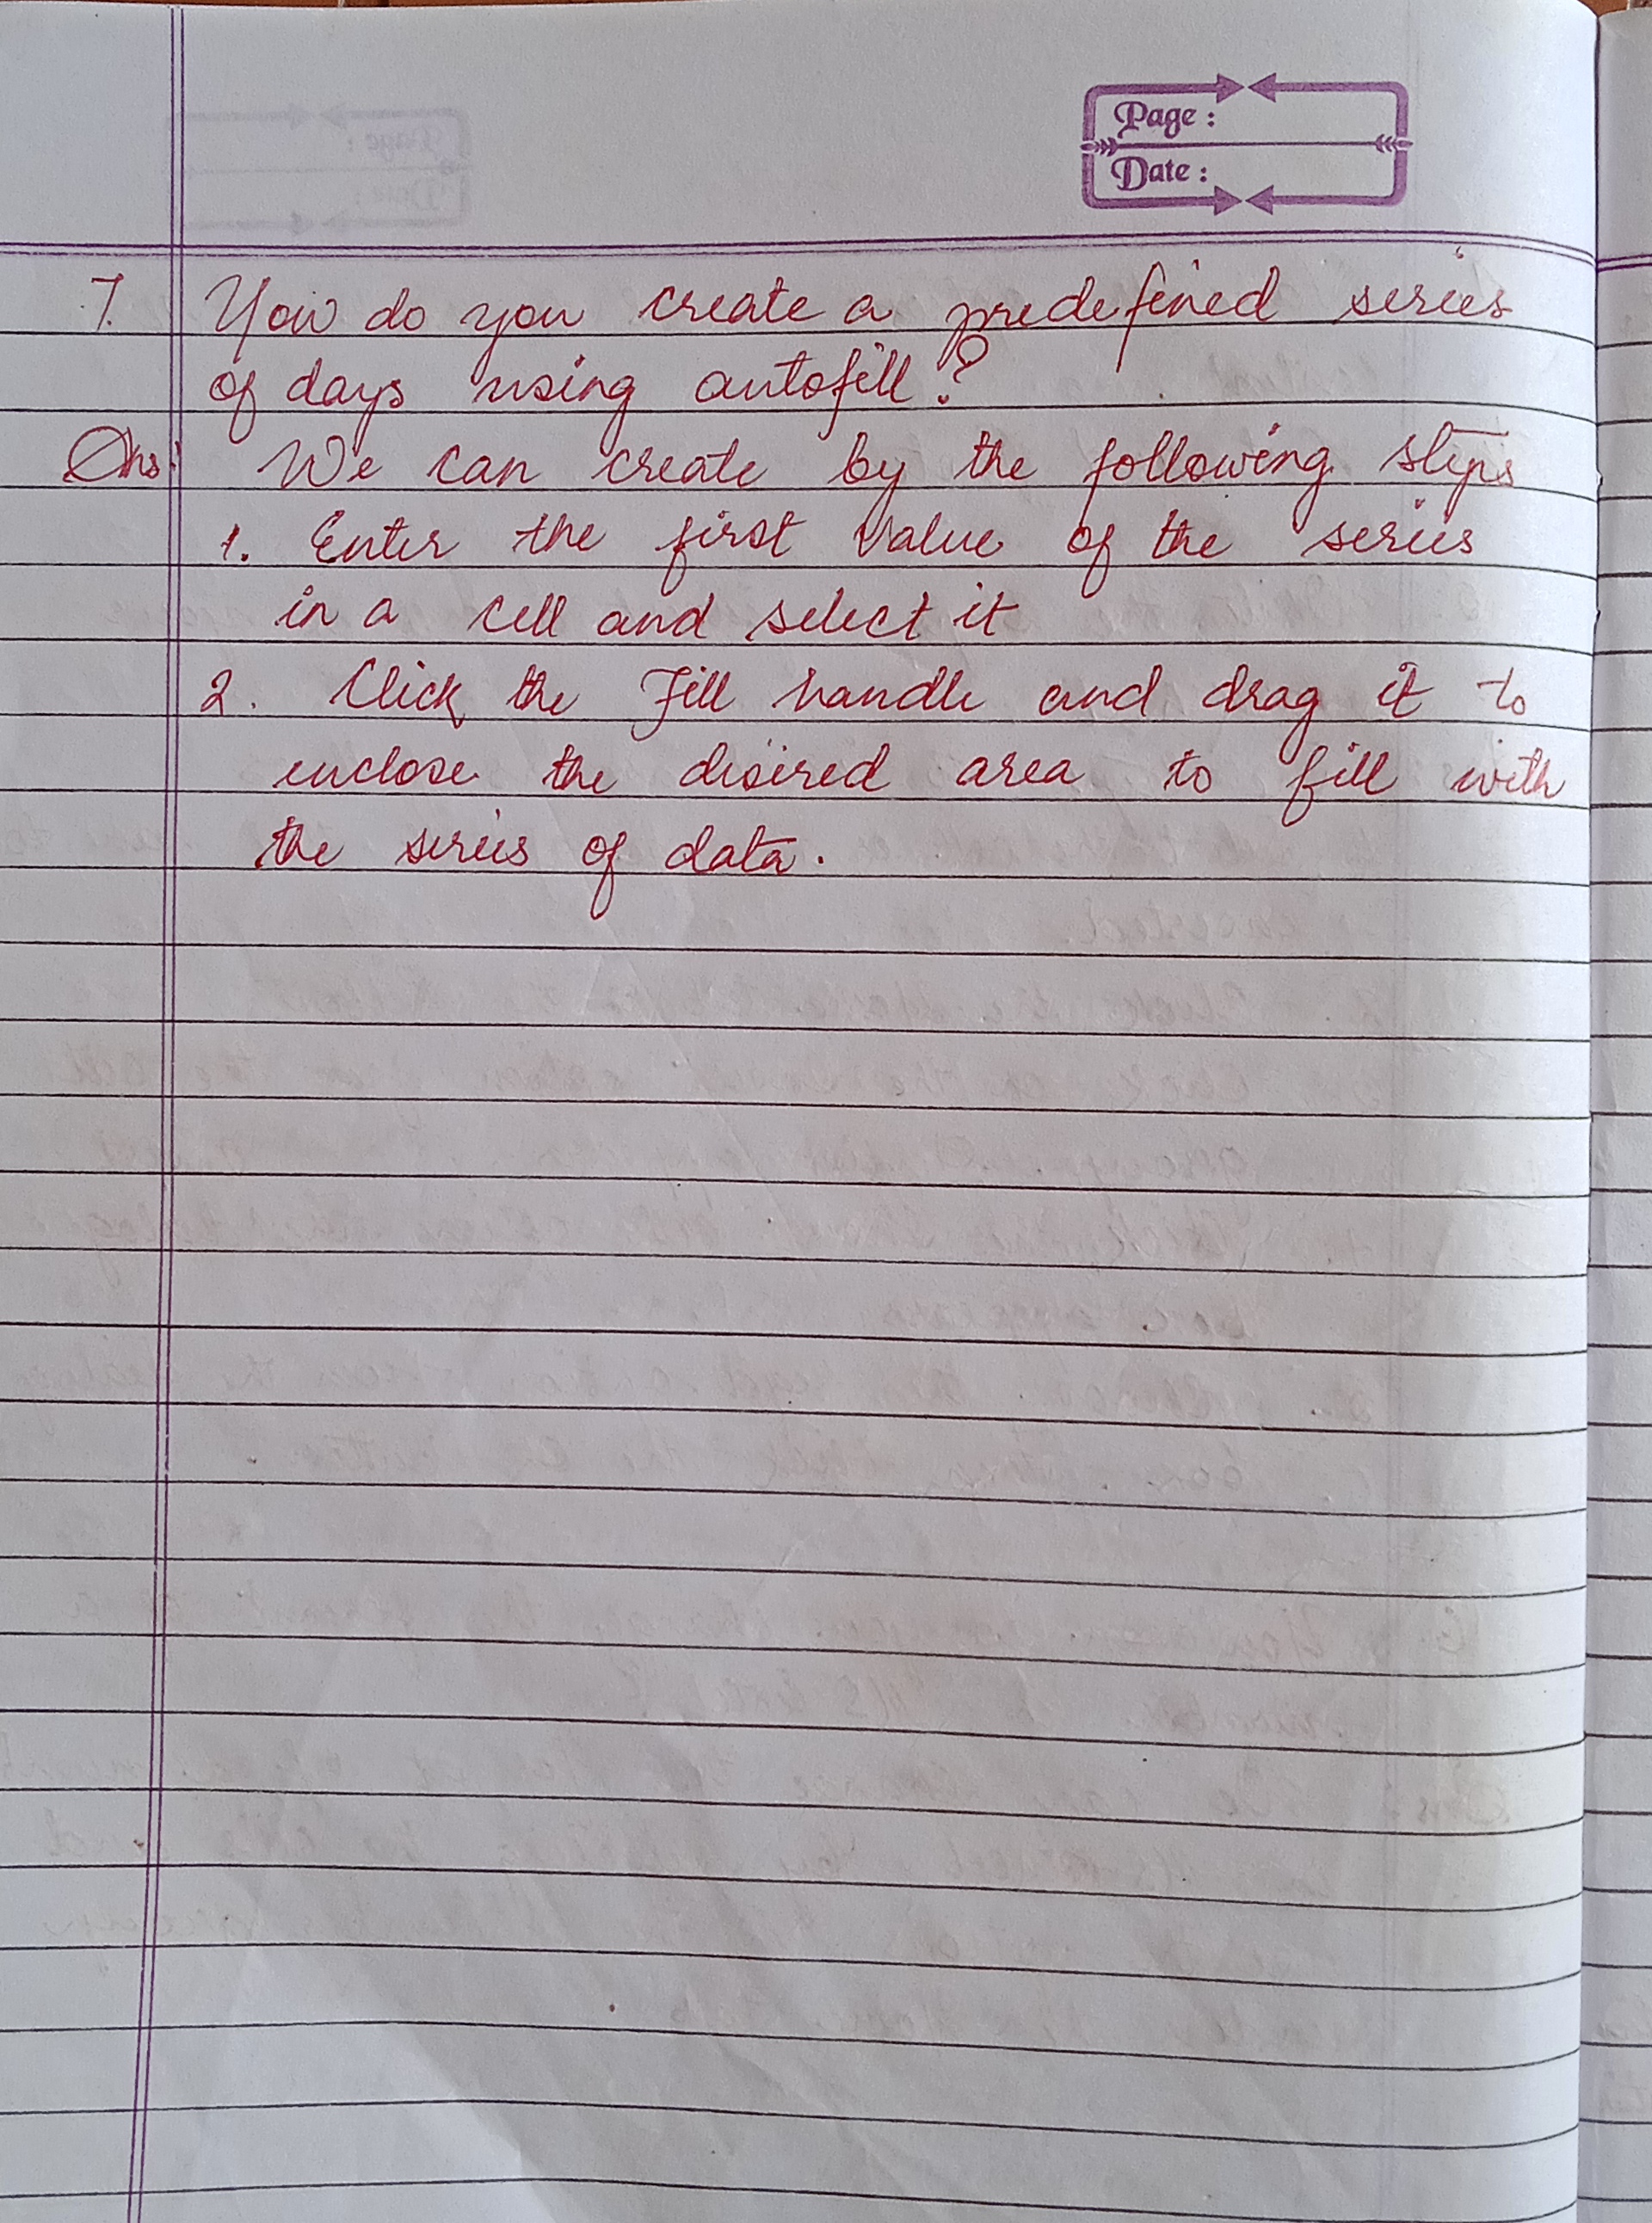 Page :
Date :
7. How do you create a predefined series
of days using autofill?
Ans: We can create by the following steps
1. Enter the first value of the series
in a cell and select it
2. Click the Fill handle and drag it to
enclose the disired area to fill with
the series of data.